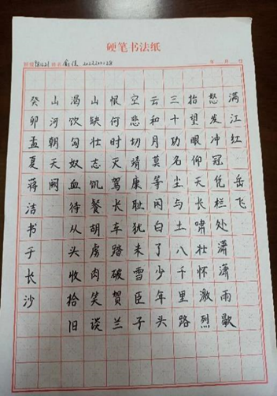 硬笔书法纸
满江红 岳飞
怒发冲冠凭栏处潇潇雨歇
抬望眼仰天长啸壮怀激烈
三十功名尘与土八千里路
云和月莫等闲白了少年头
空悲切靖康耻犹未雪臣子
恨何时灭驾长车路破贺兰
山缺壮志饥餐胡虏肉笑谈
渴饮匈奴血待从头收拾旧
山河朝天阙
癸卯孟夏蒋洁书于长沙